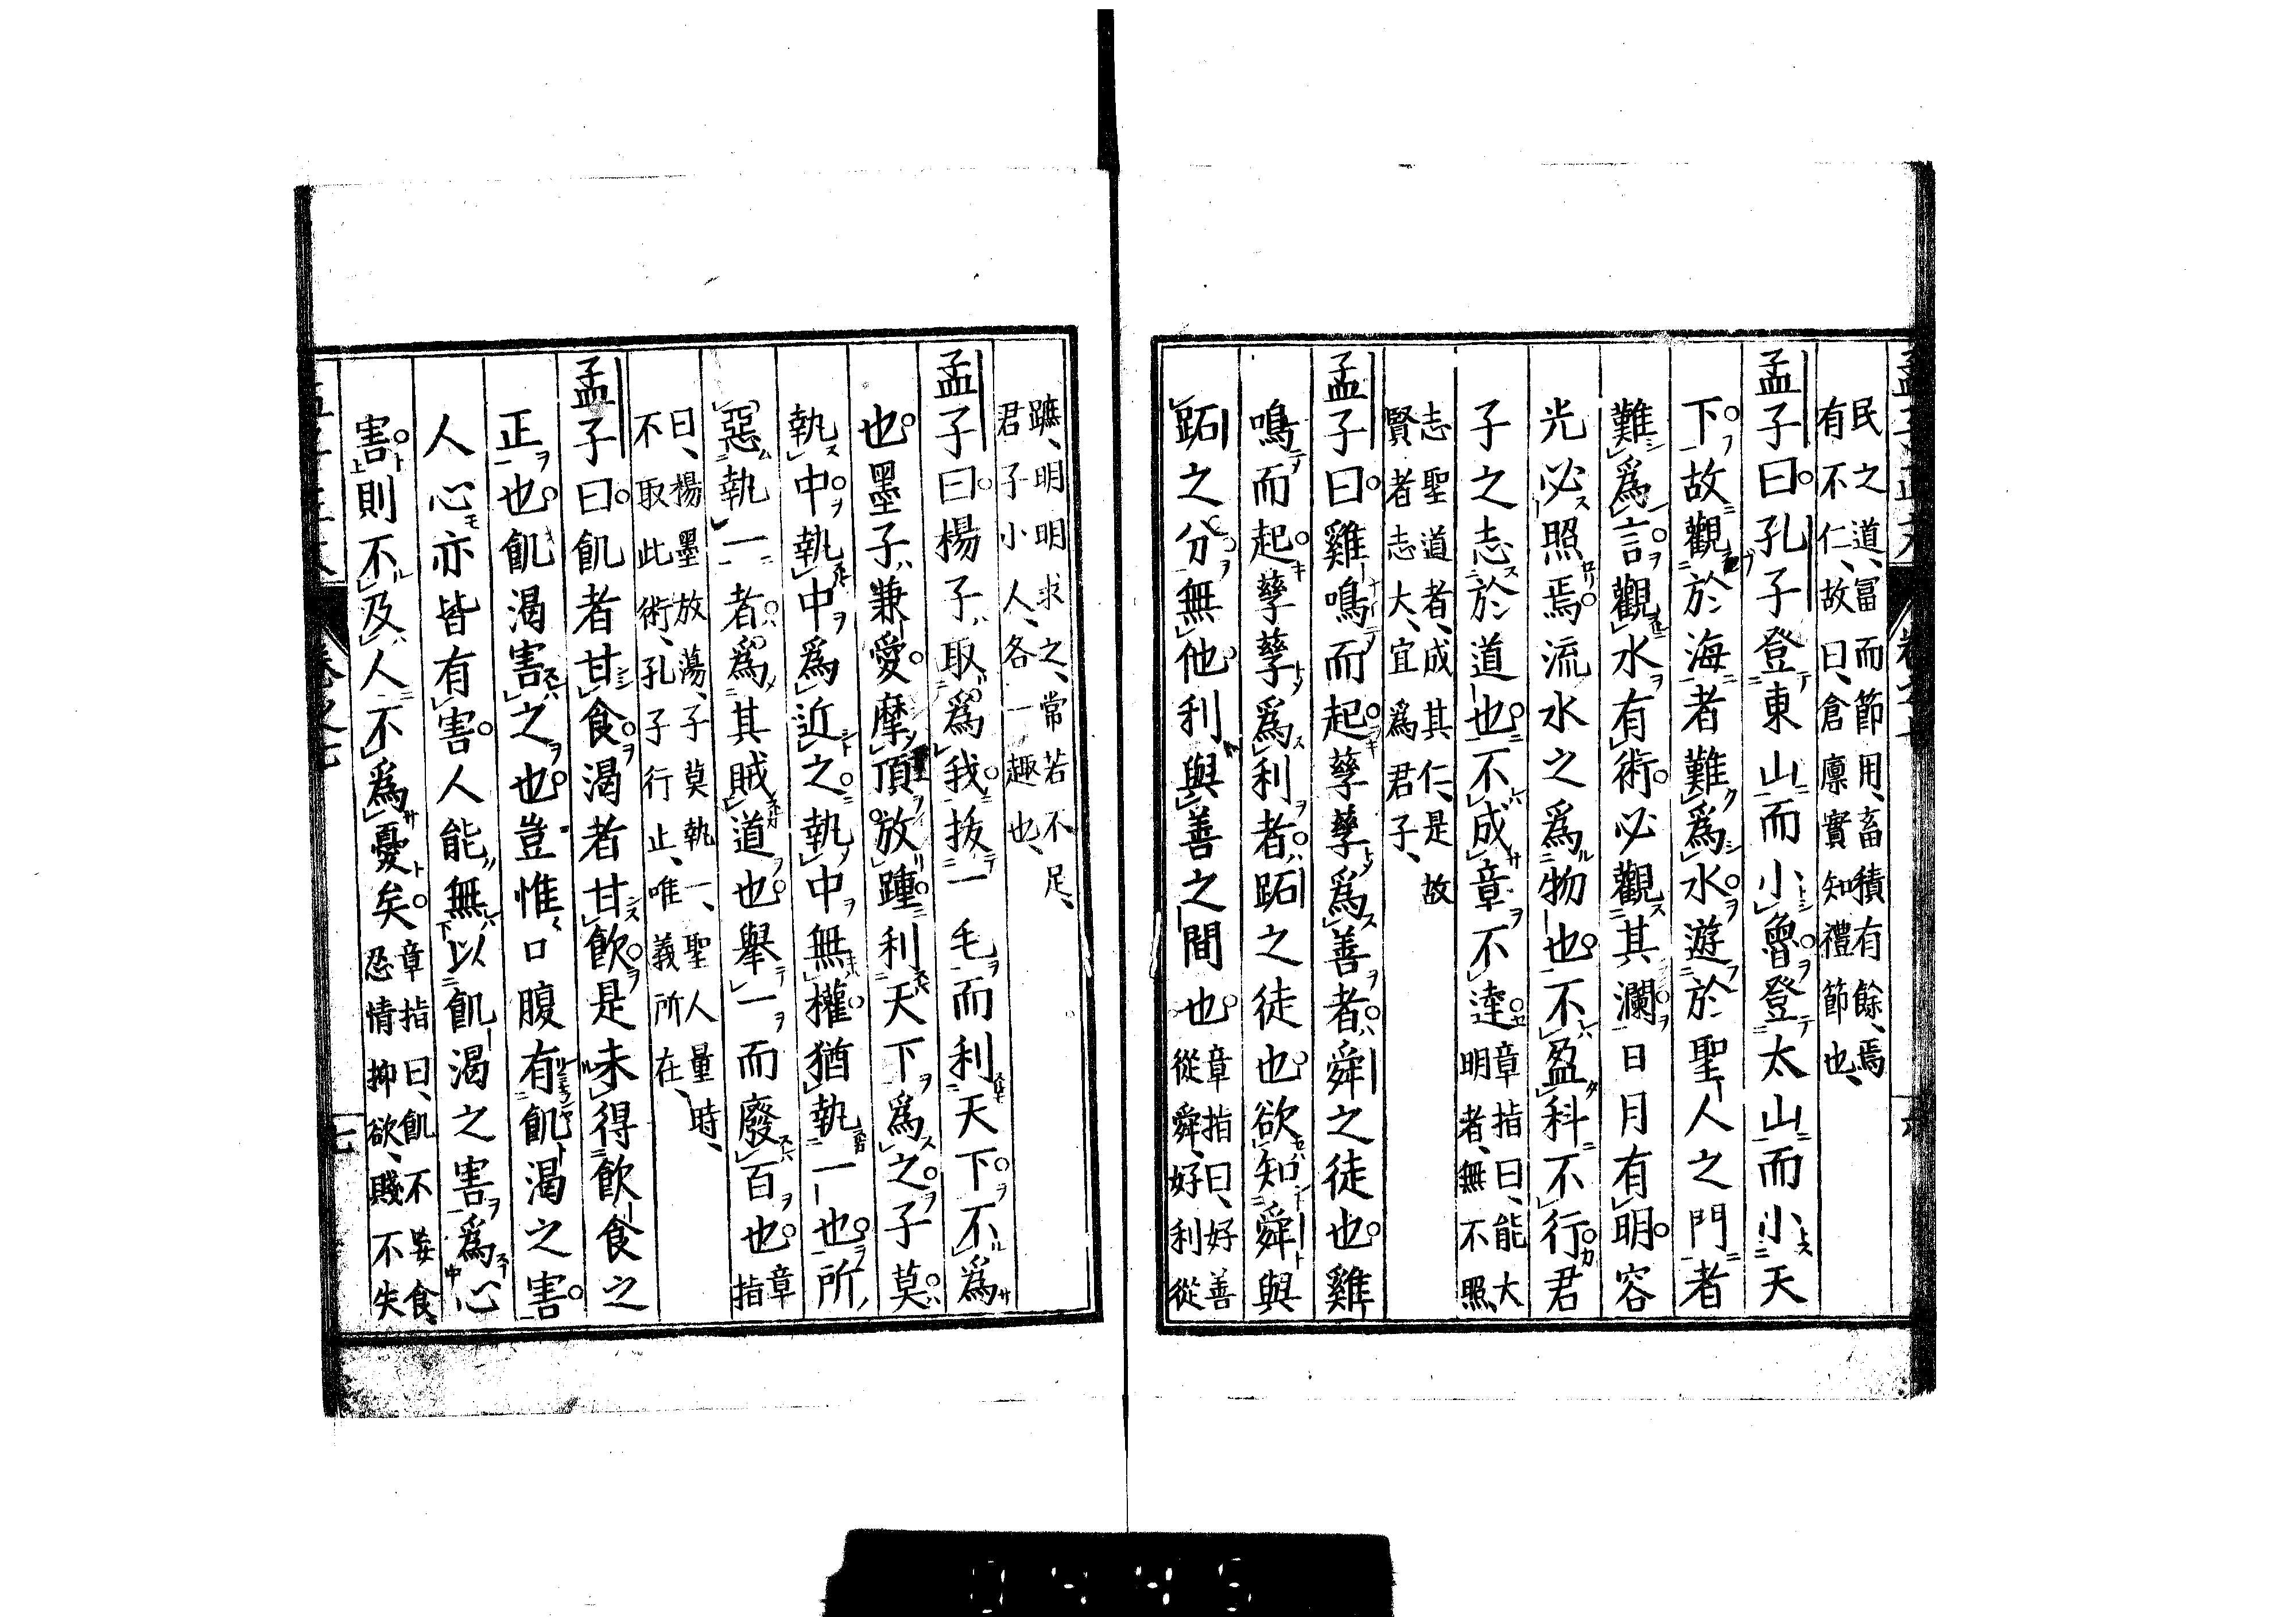 民之道、冨而節用、畜積有餘、焉
有不仁、故曰、倉廪實知禮節也、
孟子曰孔子登東山而小魯登太山而小天
下故觀於海者難爲水遊於聖人之門者
難爲言觀水有術必觀其瀾日月有明容
光必照焉流水之爲物也不盈科不行君
子之志於道也不成章不達章指曰、能大
明者、無不照、
志聖道者、成其仁、是故
賢者志大、宜爲君子、
孟子曰雞鳴而起孳孳爲善者舜之徒也雞
鳴而起孳孳爲利者跖之徒也欲知舜與
跖之分無他利與善之間也章指曰、好善
從舜、好利從
蹠、明明求之、常若不足、
君子小人、各一趣也、
孟子曰楊子取爲我拔一毛而利天下不爲
也墨子兼愛摩頂放踵利天下爲之子莫
執中執中爲近之執中無權猶執一也所
惡執一者爲其賊道也舉一而廢百也章
指
曰、楊墨放蕩、子莫執一、聖人量時、
不取此術、孔子行止、唯義所在、
孟子曰飢者甘食渴者甘飲是未得飲食之
正也飢渴害之也豈惟口腹有飢渴之害
人心亦皆有害人能無以飢渴之害爲心
害則不及人不爲憂矣章指曰、飢不妄食、
忍情抑欲、賤不失